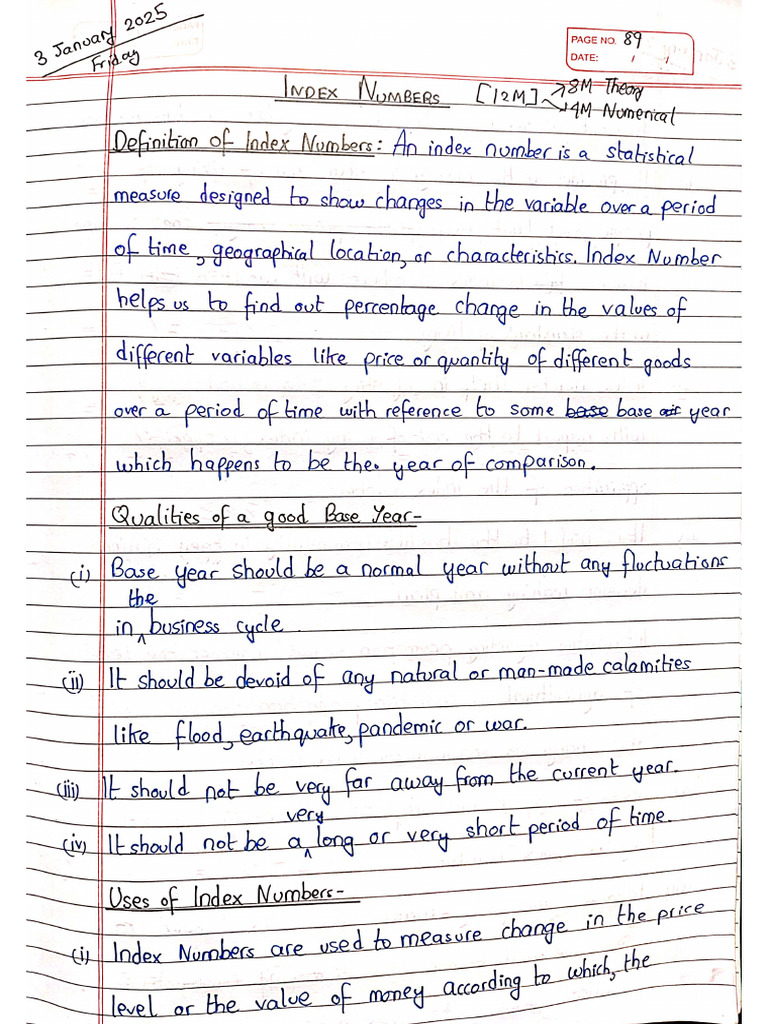 3 January 2025
Friday
PAGE NO. 89
DATE: / /
INDEX NUMBERS [12M] → 8M Theory
→ 4M Numerical
Definition of Index Numbers: An index number is a statistical
measure designed to show changes in the variable over a period
of time, geographical location, or characteristics. Index Number
helps us to find out percentage change in the values of
different variables like price or quantity of different goods
over a period of time with reference to some base base year
which happens to be the. year of comparison.
Qualities of a good Base Year-
(i) Base year should be a normal year without any fluctuations
the
in ^ business cycle
(ii) It should be devoid of any natural or man-made calamities
like flood, earthquake, pandemic or war.
(iii) It should not be very far away from the current year.
very
(iv) It should not be a ^ long or very short period of time.
Uses of Index Numbers-
(i) Index Numbers are used to measure change in the price
level or the value of money according to which, the